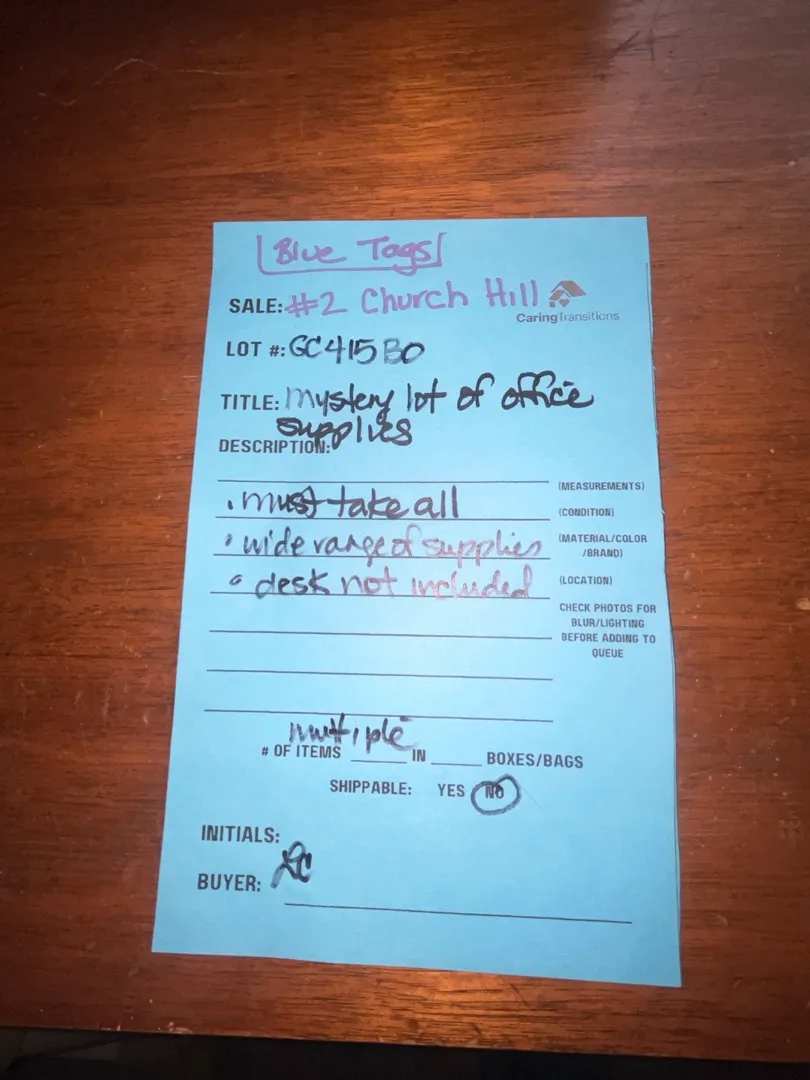 Blue Tags
SALE: #2 Church Hill
CaringTransitions
LOT #: GC415BO
TITLE: Mystery lot of office
supplies
DESCRIPTION:
(MEASUREMENTS)
• must take all
(CONDITION)
• wide range of supplies
(MATERIAL/COLOR
/BRAND)
• desk not included
(LOCATION)
CHECK PHOTOS FOR
BLUR/LIGHTING
BEFORE ADDING TO
QUEUE
multiple
# OF ITEMS ______ IN ______ BOXES/BAGS
SHIPPABLE: YES NO
INITIALS:
LC
BUYER: